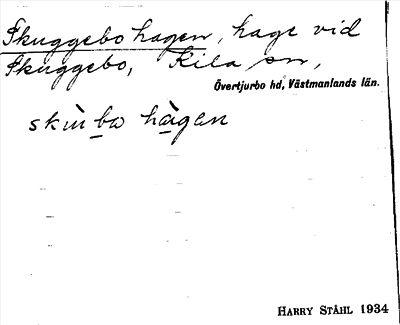 Skuggebo hagen, hage vid
Skuggebo, Kila sn,
Övertjurbo hd, Västmanlands län.
hàgen
HARRY STÅHL 1934